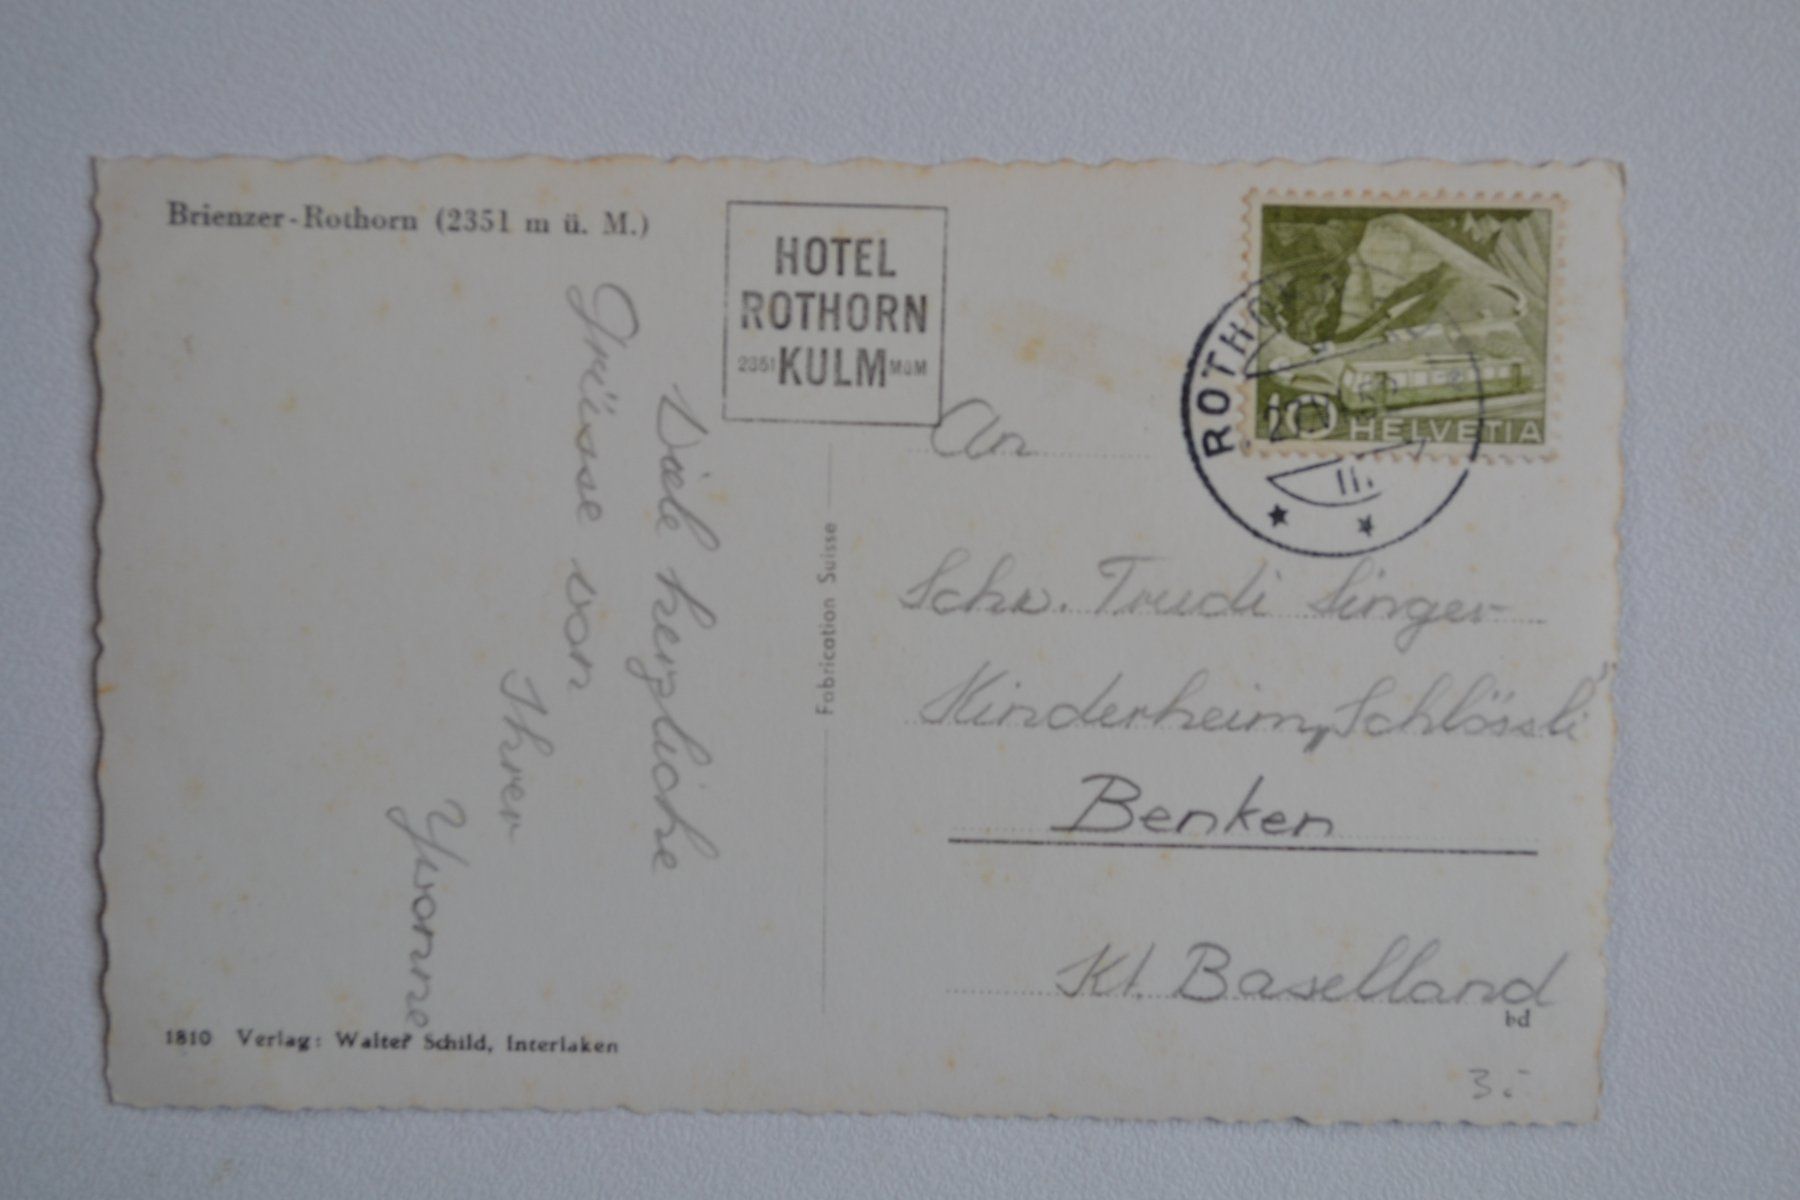 Brienzer-Rothorn (2351 m ü. M.)
HOTEL
ROTHORN
2351 KULM MüM
Viele herzliche
Grüsse von
Ihrer
Yvonne
1810 Verlag: Walter Schild, Interlaken
Fabrication Suisse
10 HELVETIA
An
Schw. Trudi Singer
Kinderheim, Schlössli
Benken
Kt. Baselland
bd
3.-